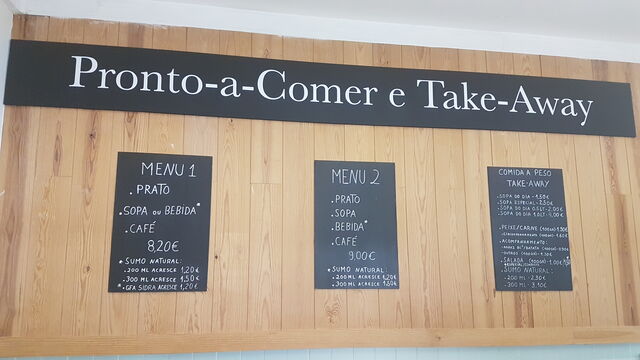 Pronto-a-Comer e Take-Away
MENU 1
. PRATO
. SOPA OU BEBIDA*
. CAFÉ
8,20€
* SUMO NATURAL:
. 200 ML ACRESCE 1,20€
. 300 ML ACRESCE 1,50€
. * GFA SIDRA ACRESCE 1,20€
MENU 2
. PRATO
. SOPA
. BEBIDA*
. CAFÉ
9,00€
* SUMO NATURAL:
. 200 ML ACRESCE 1,20€
. 300 ML ACRESCE 1,50€
COMIDA A PESO
TAKE-AWAY
. SOPA DO DIA - 1,80€
. SOPA ESPECIAL - 2,50€
. SOPA DO DIA 0.5LT - 2,00€
. SOPA DO DIA 1.0LT - 4,00€
. PEIXE/CARNE (100GR)
. ACOMPANHAMENTO:
(100GR)
. OUTROS (100GR) - 1.30€
. SALADA (100GR) - 1.00€
. SUMO NATURAL:
. 200 ML - 2.30€
. 300 ML - 3.10€